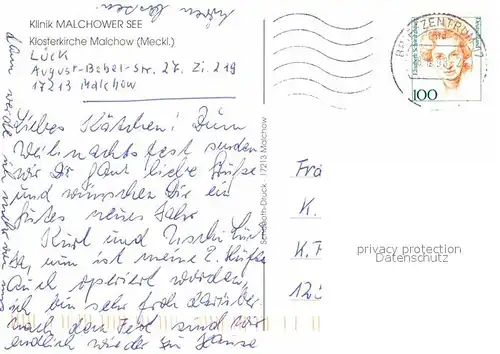 hören lassen.
Klinik MALCHOWER SEE
Klosterkirche Malchow (Meckl.)
Lück
August-Bebel-Str. 27. Zi. 219
17213 Malchow
Liebes Kätchen! Zum
Weihnachtsfest senden
wir Dir ganz liebe Grüße
und wünschen Dir ein
gutes neues Jahr
Kurt und Uschi Lück
Ja, nun ist meine 2. Hüfte
auch operiert worden,
ich bin sehr froh darüber
nach dem Fest sind wir
endlich wieder zu Hause
dann werde ich mehr von mir
17213 Malchow
BRIEFZENTRUM
100
Fra
K.
K.
12
privacy protection
Datenschutz